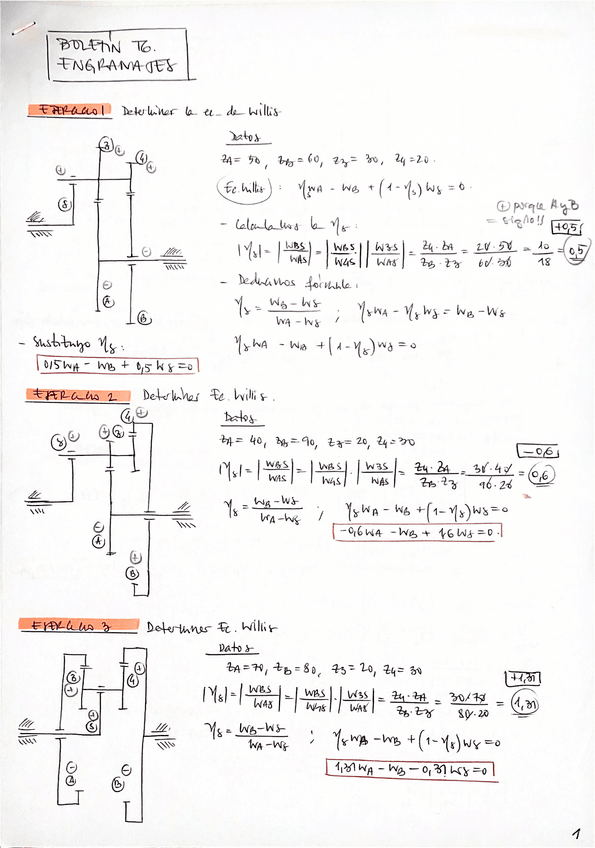 BOLETÍN T6.
ENGRANAJES
EJERCICIO 1 Determinar la ec. de Willis
Datos
ZA = 50, ZB = 60, Z3 = 30, Z4 = 20.
Ec. Willis: ηs WA - WB + (1 - ηs) WS = 0.
+ porque A y B
= signo!!
- Calculamos la ηs:
+0,5
|ηs| = |WBS/WAS| = |WBS/W4S| |W3S/WAS| = Z4·ZA/ZB·Z3 = 20·50/60·30 = 10/18 = 0,5
- Deducimos fórmula:
ηs = WB - WS/WA - WS ; ηs WA - ηs WS = WB - WS
ηs WA - WB + (1 - ηs) WS = 0
- Sustituyo ηs:
0,5 WA - WB + 0,5 WS = 0
3 +
4 +
+
S
-
- A
- B
EJERCICIO 2 Determinar Ec. Willis.
Datos
ZA = 40, ZB = 90, Z3 = 20, Z4 = 30
-0,6
|ηs| = |WBS/WAS| = |WBS/W4S| · |W3S/WAS| = Z4·ZA/ZB·Z3 = 30·40/90·20 = 0,6
ηs = WB - WS/WA - WS ; ηs WA - WB + (1 - ηs) WS = 0
-0,6 WA - WB + 1,6 WS = 0.
4 +
S + + 3
- A
+ B
EJERCICIO 3 Determinar Ec. Willis
Datos
ZA = 70, ZB = 80, Z3 = 20, Z4 = 30
+1,31
|ηs| = |WBS/WAS| = |WBS/W4S| · |W3S/WAS| = Z4·ZA/ZB·Z3 = 30·70/80·20 = 1,31
ηs = WB - WS/WA - WS ; - WB + (1 - ηs) WS = 0
1,31 WA - WB - 0,31 WS = 0
3 +
4 +
S
- A
- B
1